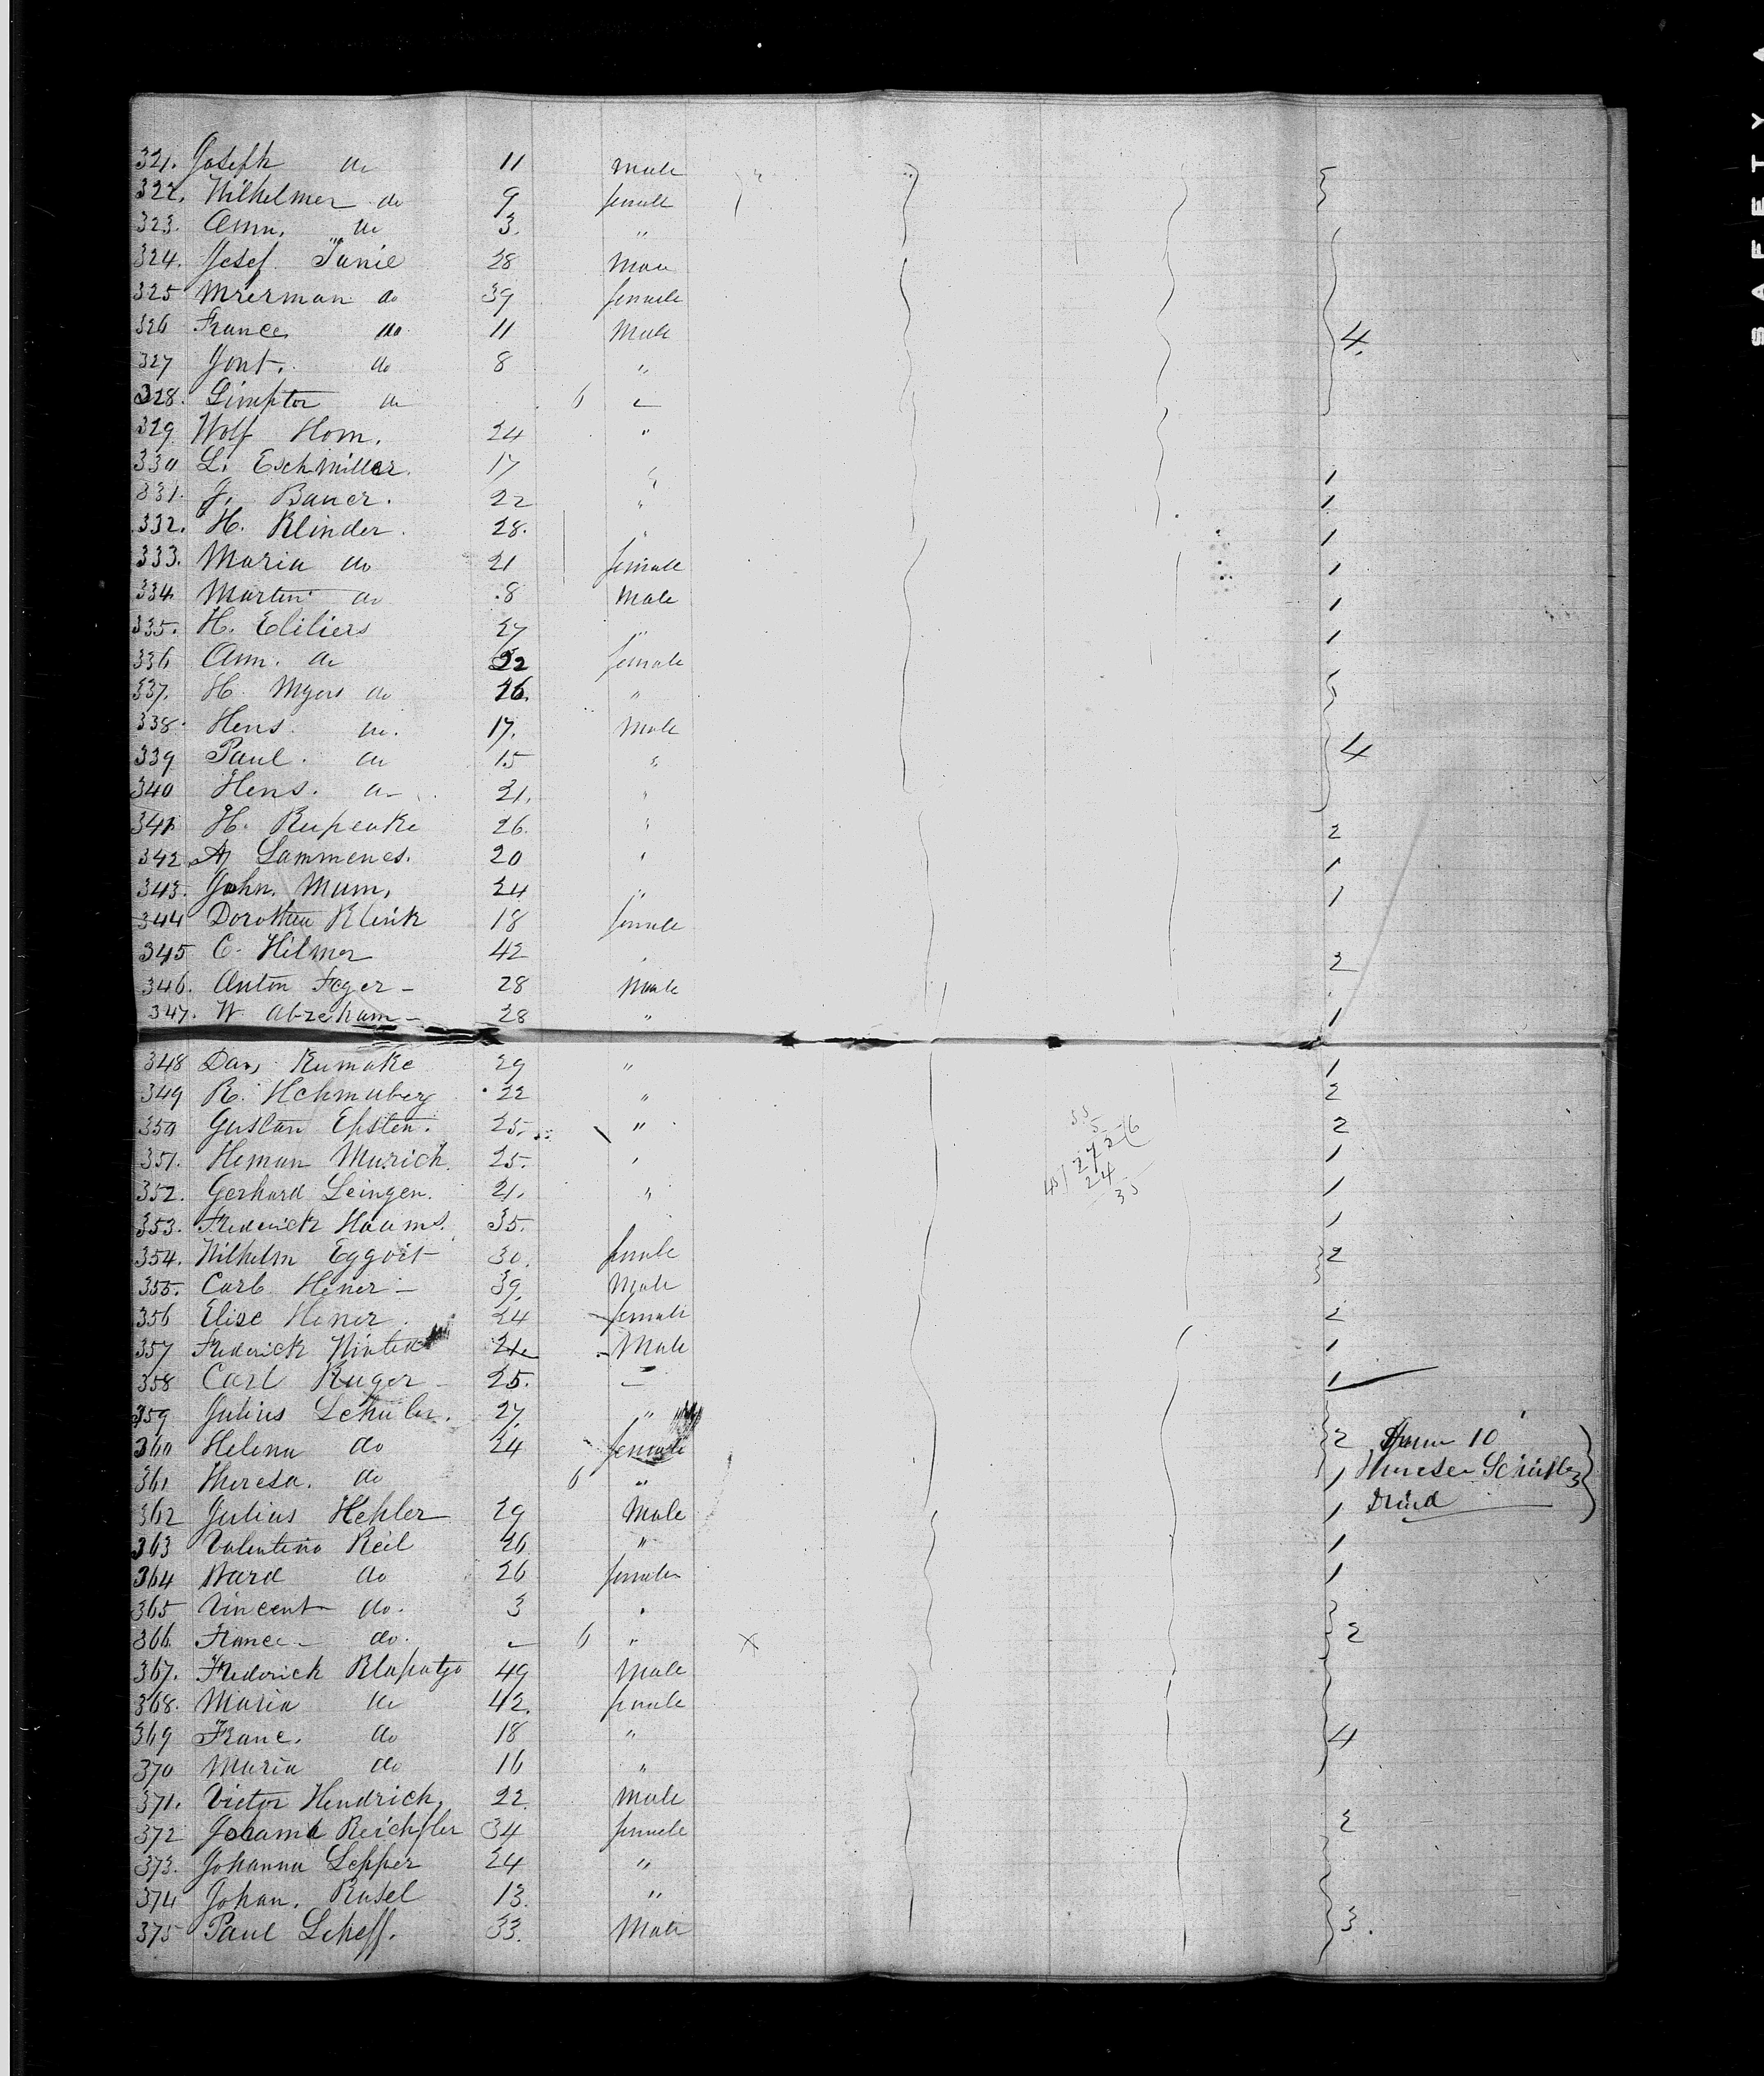 321. Joseph do 11 Male
322. Wilhelmer do 9 female
323. Ann. do 3. "
324. Josef Janie 28 Male
325 Mrerman do 39 female
326 France do 11 Male 4.
327 Jont. do 8 "
328. Limptor do 6
329 Wolf Horn. 24 "
330 L. Eschmiller. 17 " 1
331. J. Bauer. 22 " 1
332. H. Klinder. 28. " 1
333. Maria do 21 female 1
334 Martin do 8 Male 1
335. H. Eliliers 27 " 1
336 Ann. do 22 female
337. H. Myers do 26. "
338. Hens. do. 17. Male
339 Paul. do 15 " 4
340 Hens. do 21. "
341 H. Rupeake 26. " 2
342 A Lammenes. 20 " 1
343. John. Mum. 24 " 1
344 Dorothea Klink 18 female
345 C. Hilmer 42 " 2
346. Anton Feger - 28 Male
347. W Abreham - 28 " 1
348 Dav, Kumake 29 " 1
349 R. Hchmuberg 22 " 2
350 Gustav Epsten. 25. " 2
351. Heman Murich. 25. " 1
352. Gerhard Leingen. 21. " 1
353. Frederick Haams. 35. 1
354. Wilhelm Eggvit 30. female 2
355. Carl Hener - 39. Male
356 Elise Hener. 24 female 2
357 Frederick Winted 21 Male 1
358 Carl Kuger 25. 1
359 Julius Schuler. 27. "
360 Helena do 24 female 2 10
361 Theresa. do 6 " 1 Theresa Schuler
362 Julius Hehler 29 Male 1 Died
363 Valentino Keil 26 " 1
364 Ward do 26 female 1
365 Vincent do. 3 "
366. France do. 6 " X 2
367. Frederick Klapatzo 49 Male
368. Maria do 42. female
369 Franc. do 18 " 4
370 Maria do 16 "
371. Victor Hendrick, 22. Male
372 Johama Reichfler 34 female 2
373. Johanna Lepper 24 "
374 Johan. Rasel 13. "
375 Paul Scheff. 33. Male 3.
SAFETY